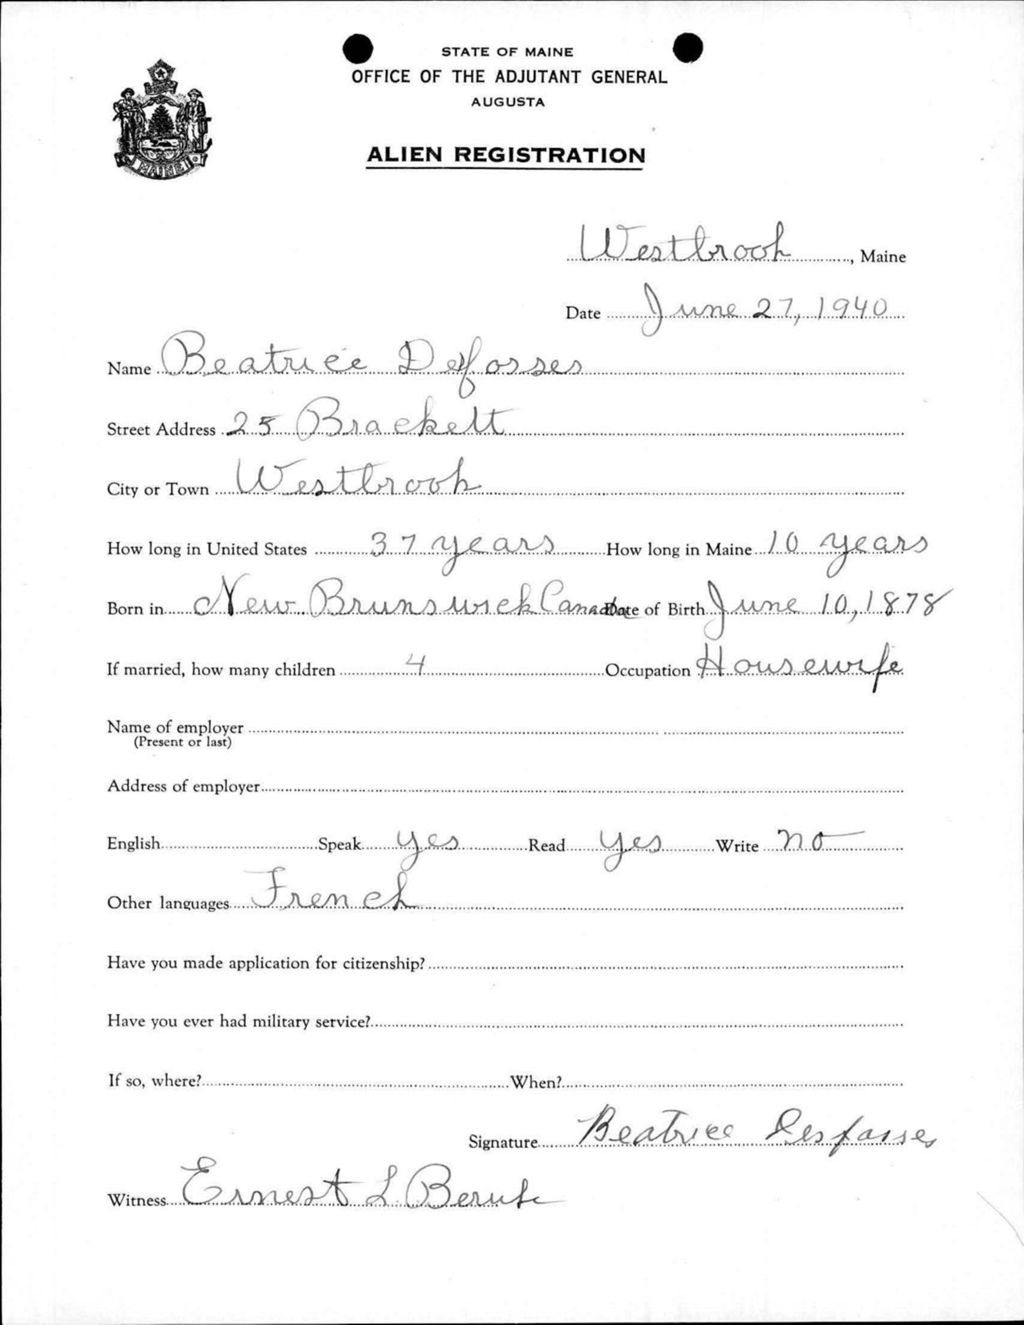 STATE OF MAINE
OFFICE OF THE ADJUTANT GENERAL
AUGUSTA
ALIEN REGISTRATION
MAINE
Westbrook, Maine
Date June 27, 1940
Name Beatrice Defosses
Street Address 25 Brackett
City or Town Westbrook
How long in United States 37 years How long in Maine 10 years
Born in New Brunswick Canada Date of Birth June 10, 1878
If married, how many children 4 Occupation Housewife
Name of employer
(Present or last)
Address of employer
English Speak yes Read yes Write no
Other languages French
Have you made application for citizenship?
Have you ever had military service?
If so, where? When?
Signature Beatrice Desfosses
Witness Ernest L.